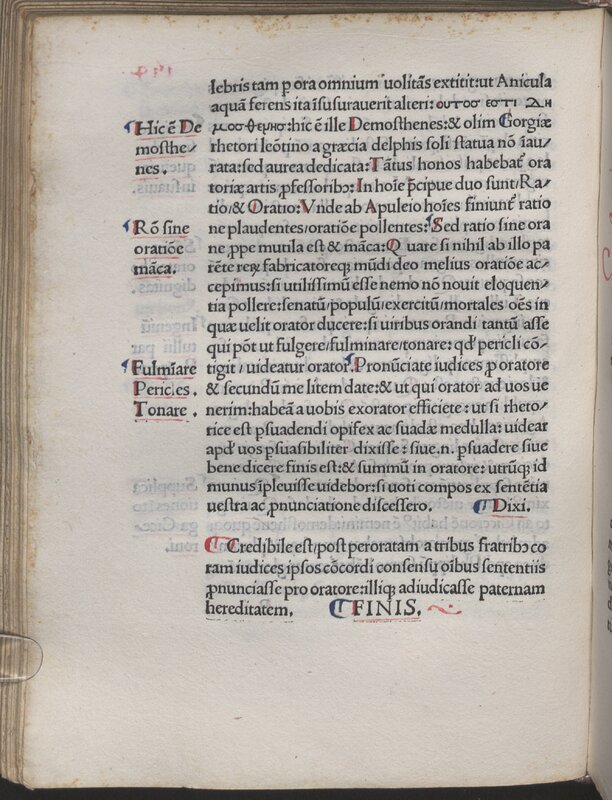 lebris tam ꝓ ora omnium uolitãs extitit:ut Anicula
aquã ferens ita ĩsusurauerit alteri: ουτοσ εστι Δη
μοσθενησ:hic ẽ ille Demosthenes:& olim Gorgiæ
rhetori leõtino a græcia delphis soli statua nõ ĩau/
rata:sed aurea dedicata:Tãtus honos habebat᷑ ora
toriæ artis ꝓfessoribꝫ:In hoĩe p̃cipue duo sunt/Ra/
tio/& Oratio:Vnde ab Apuleio hoĩes finiunt᷑ ratio
ne plaudentes/oratiõe pollentes:Sed ratio sine ora
ne ,ppe mutila est & mãca:Quare si nihil ab illo pa
rẽte reꝝ fabricatoreqꝫ mũdi deo melius oratiõe ac/
cepimus:si utilissimũ esse nemo nõ nouit eloquen/
tia pollere:senatũ/populũ/exercitũ/mortales oẽs in
quæ uelit orator ducere:si uiribus orandi tantũ asse
qui põt ut fulgere/fulminare/tonare: qd' pericli cõ/
tigit/uideatur orator.Pronũciate iudices ꝓ oratore
& secundũ me litem date:& ut qui orator ad uos ue
nerim:habeã a uobis exorator efficiete:ut si rheto/
rice est ꝑsuadendi opifex ac suadæ medulla:uidear
apd' uos ꝑsuasibiliter dixisse:siue.n.ꝑsuadere siue
bene dicere finis est:& summũ in oratore:utrũqꝫ id
munus ĩpleuisse uidebor:si uoti compos ex sentẽtia
uestra ac ꝓnunciatione discessero. Dixi.
Credibile est/post peroratam a tribus fratribꝫ co
ram iudices ipsos cõcordi consensu oĩbus sententiis
ꝓnunciasse pro oratore:illiqꝫ adiudicasse paternam
hereditatem. FINIS.
Hic ẽ De
mosthe/
nes.
Rõ sine
oratiõe
mãca.
Fulmĩare
Pericles.
Tonare.